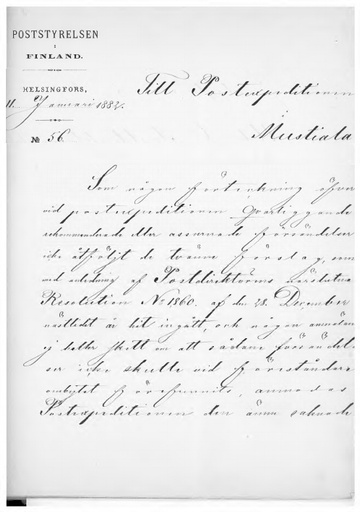 POSTSTYRELSEN
I
FINLAND.
HELSINGFORS,
Januari 1883.
№ 56
Till Postexpeditionen
i
Mustiala
Som någon förteckning öfver
vid postexpeditionen qvarliggande
rekommenderade eller assurerade försändelser
icke åtföljt de tvänne förslag, som
med anledning af Postdirektörens
Resolution № 1860. af den 28. December
sistlidet år hit ingått, och någon anmälan
ej heller skett om att sådane försändelser
icke skulle vid föreståndare
ombytet förefunnits, anmodas
Postexpeditionen den ännu saknade